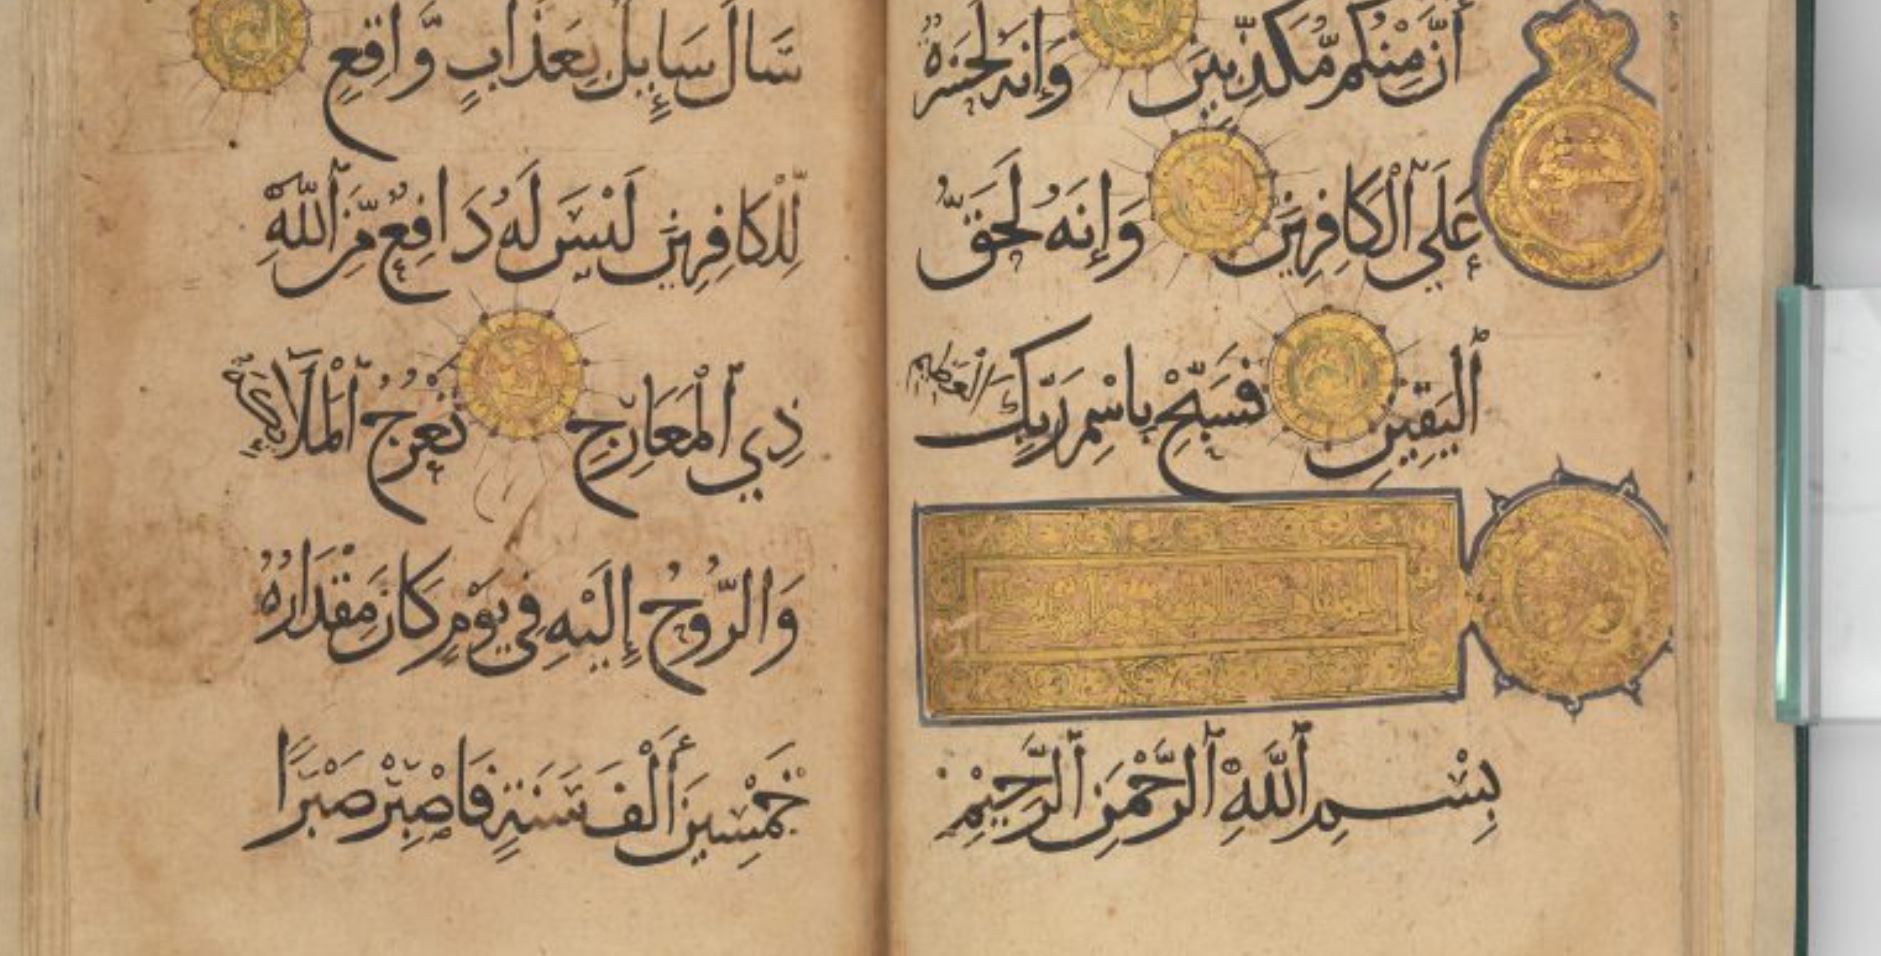 أَنَّ مِنْكُم مُّكَذِّبِينَ وَإِنَّهُ لَحَسْرَةٌ
عَلَى ٱلْكَافِرِينَ وَإِنَّهُ لَحَقُّ
ٱلْيَقِينِ فَسَبِّحْ بِاسْمِ رَبِّكَ ٱلْعَظِيمِ
بِسْمِ ٱللَّهِ ٱلرَّحْمٰنِ ٱلرَّحِيمِ
سَالَ سَايِٕلٌ بِعَذَابٍ وَّاقِعٍ
لِّلْكَافِرِينَ لَيْسَ لَهُ دَافِعٌ مِّنَ ٱللَّهِ
ذِي ٱلْمَعَارِجِ تَعْرُجُ ٱلْمَلَآئِكَةُ
وَالرُّوحُ إِلَيْهِ فِي يَوْمٍ كَانَ مِقْدَارُهُ
خَمْسِينَ أَلْفَ سَنَةٍ فَاصْبِرْ صَبْرًا